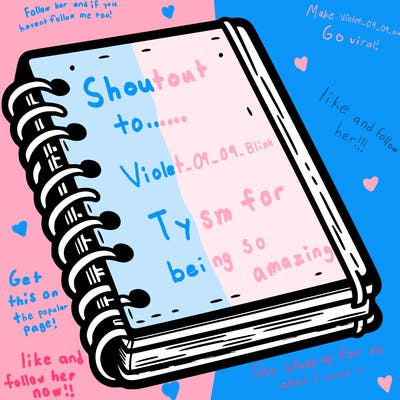 Follow her and if you
havent follow me too!
Make Violet_09_09_
Go viral!
like and follow
her!!!
Shoutout
to......
Violet_09_09_Blink
Tysm for
being so
amazing
Get
this on
the popular
page!
like and
follow her
now!!
She stood up for me
when I